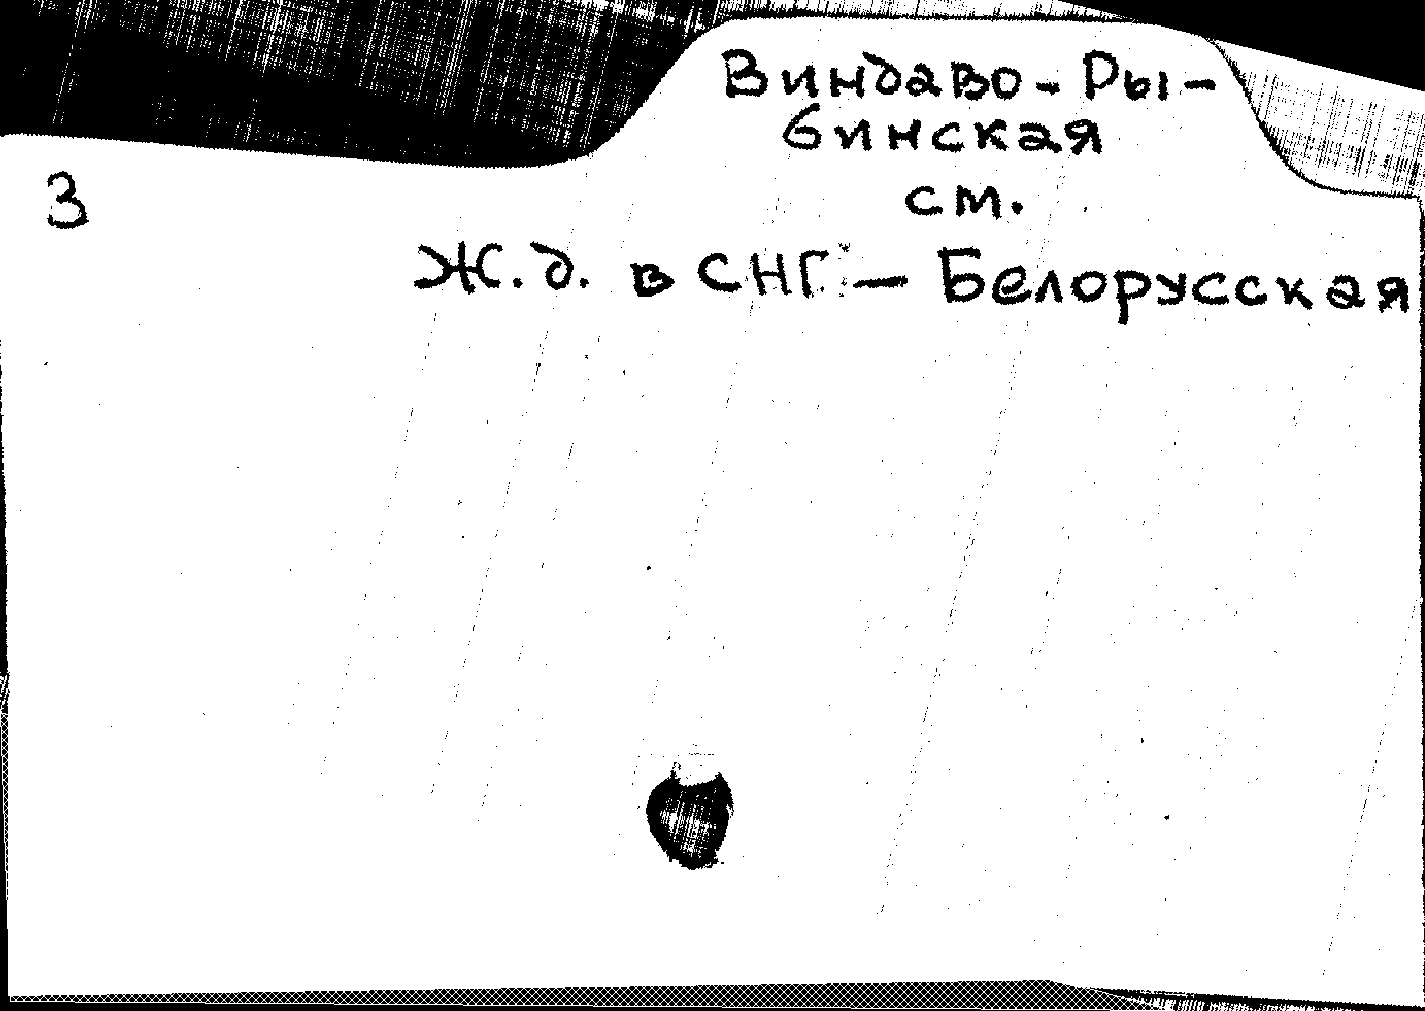 Виндаво-Ры-
бинская
см.
3
Ж.д. в СНГ — Белорусская